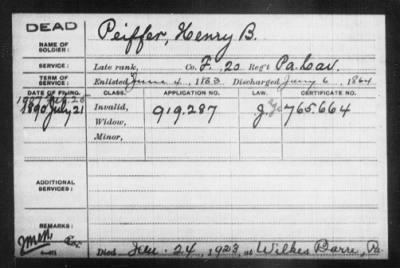 DEAD
NAME OF SOLDIER: Peiffer, Henry B.
SERVICE: Late rank, Co. F, 20 Reg't Pa. Cav.
TERM OF SERVICE: Enlisted June 4, 1863 Discharged Jany 6, 1864
DATE OF FILING. CLASS. APPLICATION NO. LAW. CERTIFICATE NO.
1907 Feb. 25
1890 July 21 Invalid, 919.287 765.664
Widow,
Minor,
ADDITIONAL SERVICES:
REMARKS:
Died Jan. 24, 1923, at Wilkes Barre, Pa.